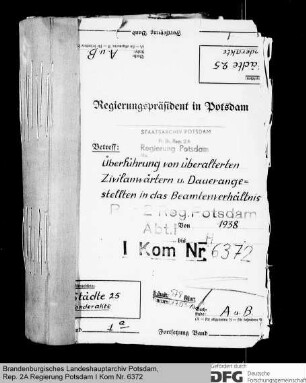 A u B
Städte 25
Regierungspräsident in Potsdam
STAATSARCHIV POTSDAM
Pr. Br. Rep. 2A
Regierung Potsdam
Betreff:
Überführung von überalterten
Zivilanwärtern u. Dauerange-
stellten in das Beamtenverhältnis
Rep. 2 Reg. Potsdam
Abt. I
Von 1938
bis
I Kom Nr. 6372
Städte 25
1a
A u B.
Fortsetzung Band
Brandenburgisches Landeshauptarchiv Potsdam,
Rep. 2A Regierung Potsdam I Kom Nr. 6372
Gefördert durch
DFG Deutsche
Forschungsgemeinschaft